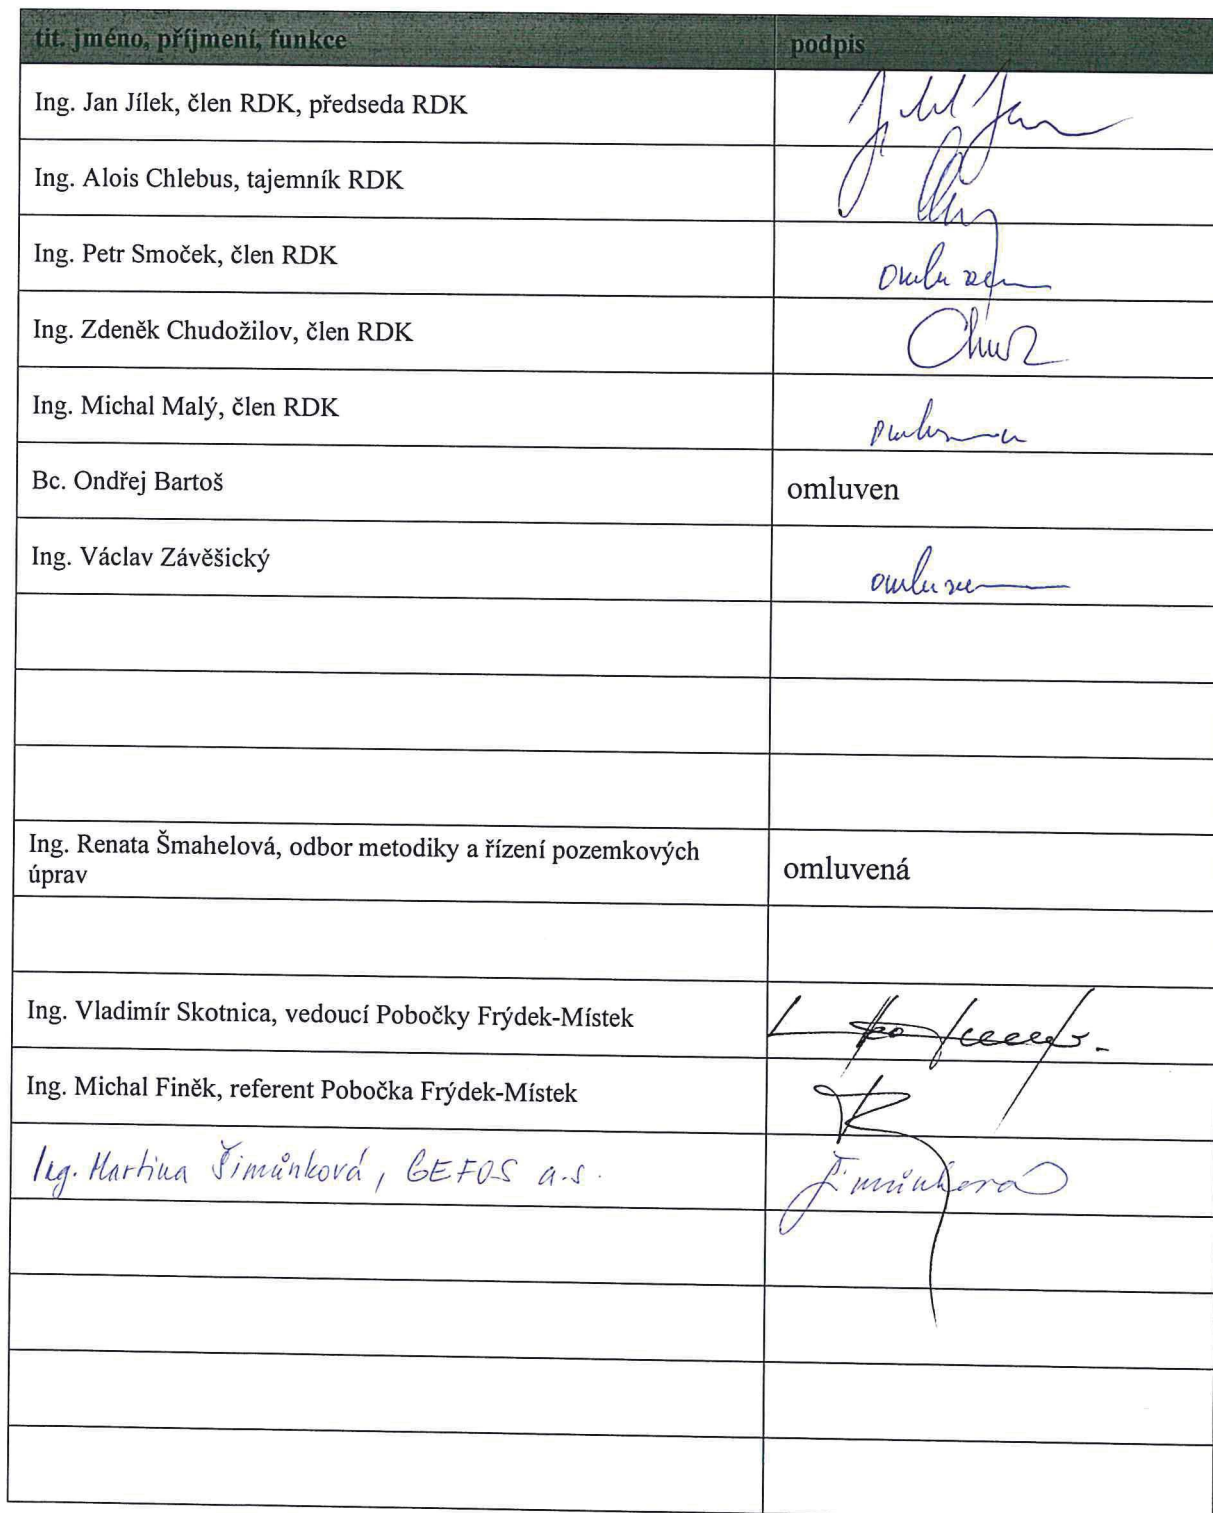 tit. jméno, příjmení, funkce podpis
Ing. Jan Jílek, člen RDK, předseda RDK
Ing. Alois Chlebus, tajemník RDK
Ing. Petr Smoček, člen RDK omluven
Ing. Zdeněk Chudožilov, člen RDK
Ing. Michal Malý, člen RDK omluven
Bc. Ondřej Bartoš omluven
Ing. Václav Závěšický omluven
Ing. Renata Šmahelová, odbor metodiky a řízení pozemkových
úprav omluvená
Ing. Vladimír Skotnica, vedoucí Pobočky Frýdek-Místek
Ing. Michal Finěk, referent Pobočka Frýdek-Místek
Ing. Martina Šimůnková, GEFOS a.s. Šimůnková